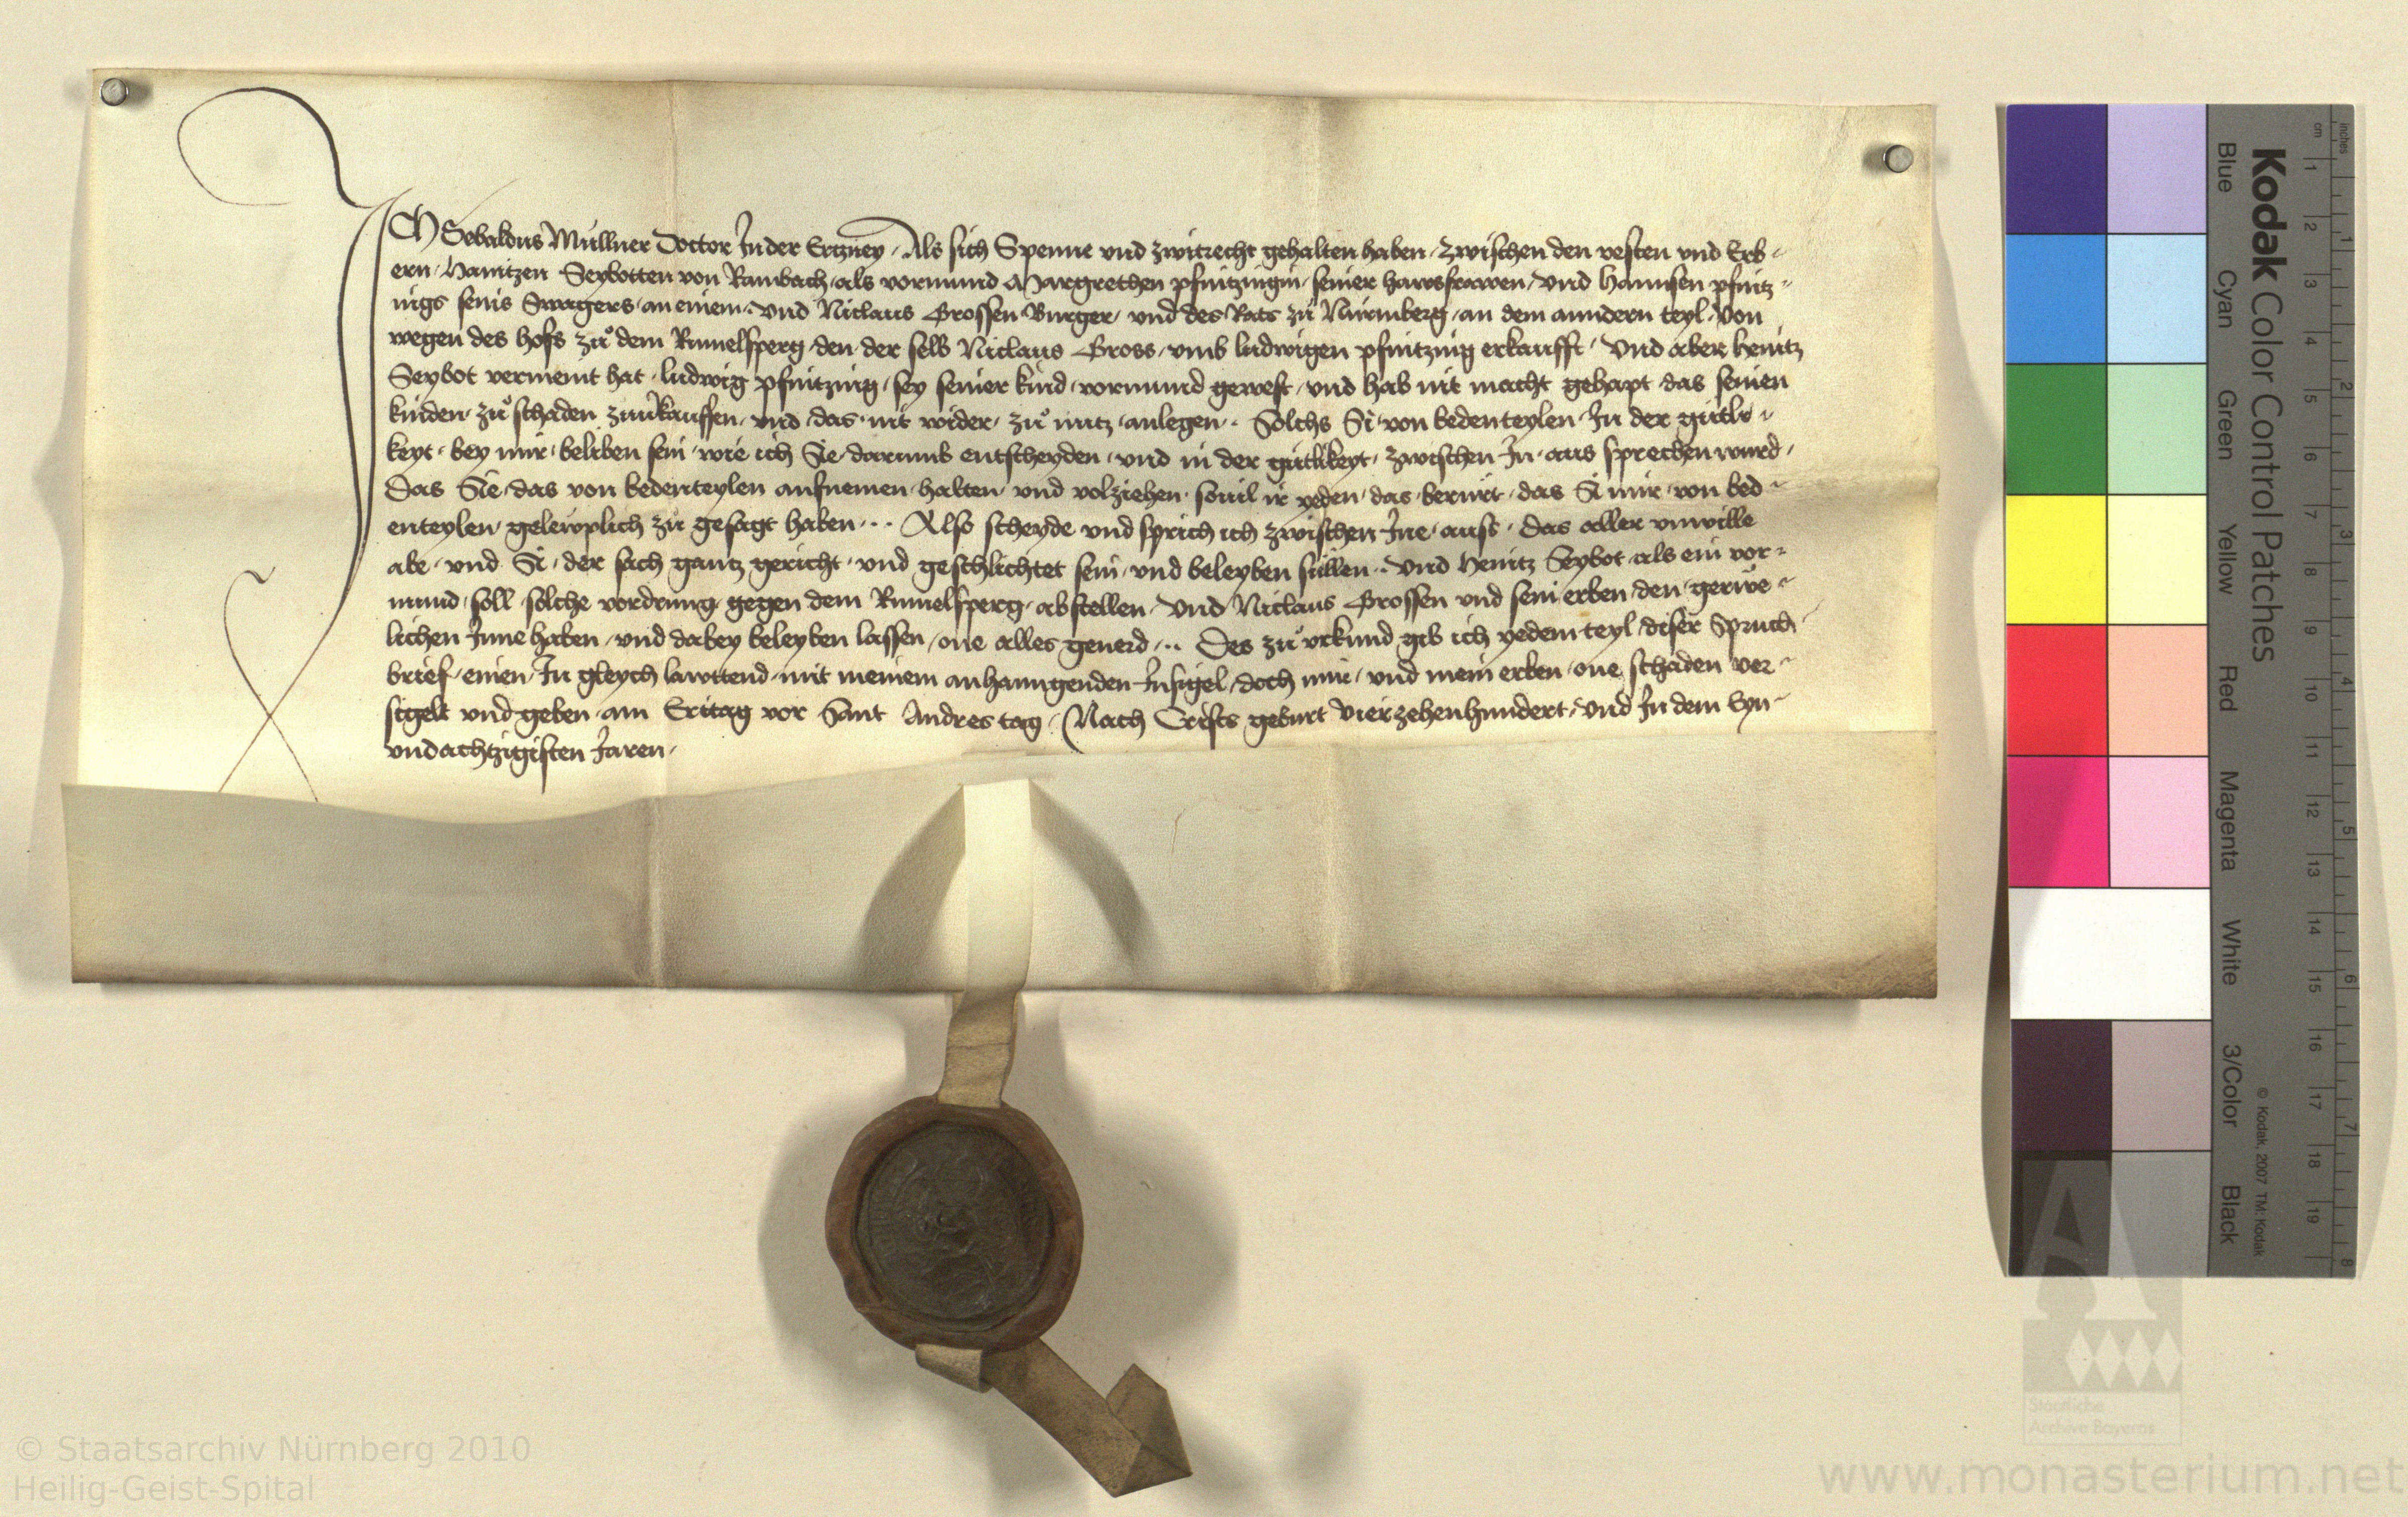 ICH Sebaldus Müllner Doctor In der Ertzney · Als sich Spenne vnd zwitrecht gehalten haben · zwischen den vesten vnd Erb-
ern · Hanntzen Seybotten von Rambach · als vormund Margrethen pfintzingin · seiner hawsfrawen · vnd Hannsen pfintz-
ings seins Swagers · an einem · vnd Niclaus Grossen Burger · vnd des Rats zu Nurmberg · an dem anndern teyl · Von
wegen des hofs zu dem Rumelsperg · den · der selb Niclaus Gross · vmb ludwigen pfintzing erkaufft · Vnd aber heintz
Seybot vermeint hat · ludwig pfintzing · sey seiner kind · vormund gewest · vnd hab nit macht gehapt das seinen
kinden · zu schaden zuuerkauffen · vnd das · nit wider · zu nutz · anlegen · Solchs Si · von bedenteylen · In der gütli-
keyt · bey mir · beliben sein · wie ich Sie darumb entscheyden · vnd in der gütlikeyt · zwischen In · aus sprechen wurd ·
Das Sie · das von bedenteylen aufnemen · halten · vnd volziehen · souil ir yeden · das · berürt · das Si mir · von bed-
enteylen · gelewplich zu gesagt haben · Also scheyde vnd sprich ich zwischen Ine · auss · das aller vnwille
abe · vnd Si · der sach gantz gericht · vnd geschlichtet sein · vnd beleyben süllen · Vnd Heintz Seybot als ein vor-
mund · soll · solche vordrung gegen dem Rumelsperg · abstellen · Vnd Niclaus Grossen vnd sein erben den · gerwe-
lichen Inne haben · vnd dabey beleyben lassen · one alles geuerd · Des zu vrkund gib ich yedem teyl · diser Spruch
brief · einen · In gleych lawttend · mit meinem anhanngenden Insigel · doch mir · vnd mein erben · one schaden ver-
sigelt vnd geben am Eritag vor Sant Andres tag · Nach Crists geburt Vierzehenhundert · vnd In dem Eyn-
vndachtzigisten Jaren ·
Kodak Color Control Patches
Blue Cyan Green Yellow Red Magenta White 3/Color Black
© Kodak, 2007 TM: Kodak
cm 1 2 3 4 5 6 7 8 9 10 11 12 13 14 15 16 17 18 19
inches 1 2 3 4 5 6 7 8
Staatliche
Archive Bayerns
© Staatsarchiv Nürnberg 2010
Heilig-Geist-Spital
www.monasterium.net